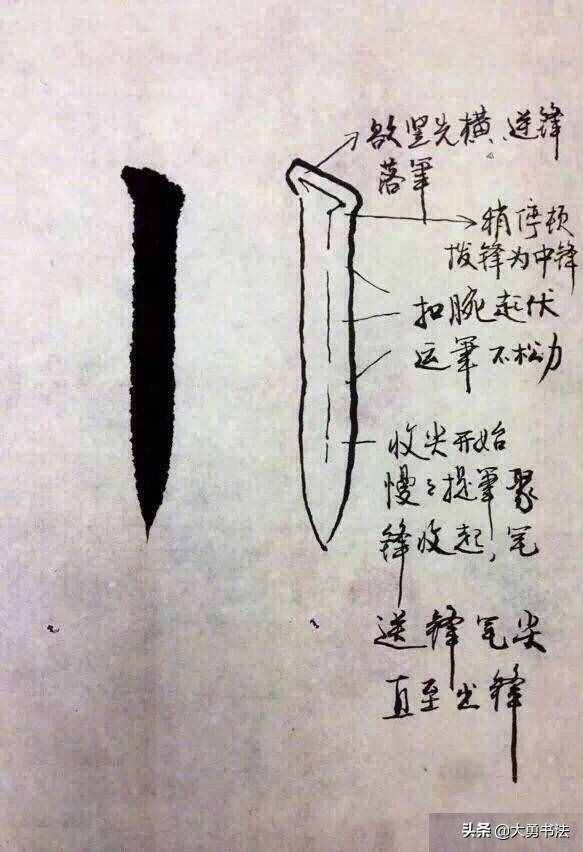 欲竖先横、逆锋
落筆
稍停顿
拨锋为中锋
扣腕起伏
运筆不松力
收尖开始
慢々提筆聚
锋收起,笔
送锋笔尖
直至出锋
头条 @大勇书法